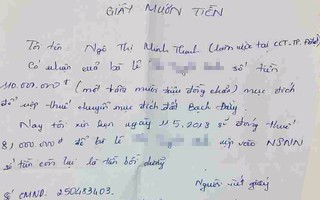 GIẤY MƯỢN TIỀN
Tôi tên Ngô Thị Minh Thanh (làm việc tại CCT-TP.
Có nhận của bà Lê số tiền
110.000.000đ (một trăm mười triệu đồng chẵn) mục đích
để nộp thuế chuyển mục đích đất Bạch Đằng
Nay tôi xin hẹn ngày 11/5.2018 sẽ đóng thuế
81,000.000đ để bà Lê nộp vào NSNN
số tiền còn lại là tiền bồi dưỡng
Số CMND. 250483403. Người viết giấy